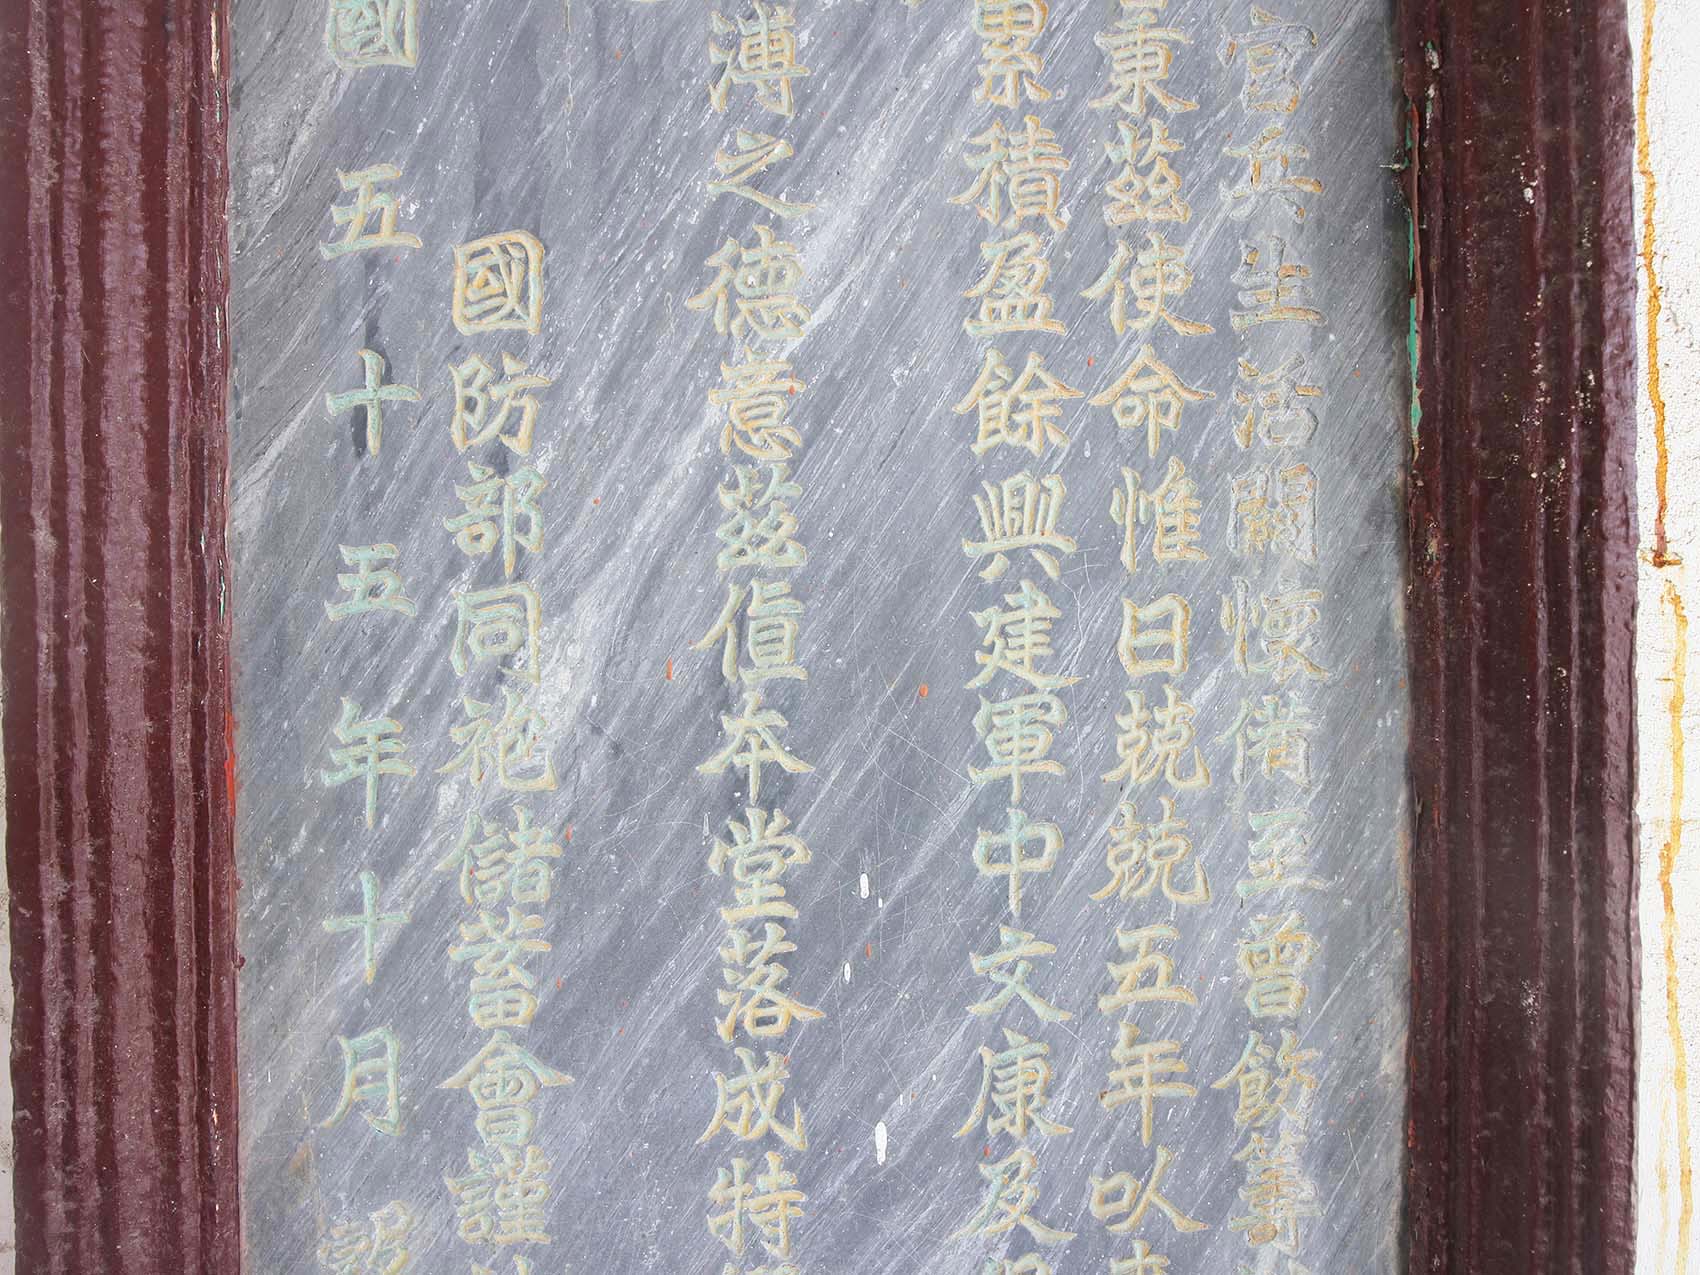 官兵生活關懷備至曾飭籌
秉茲使命惟日兢兢五年以
累積盈餘興建軍中文康及
溥之德意茲值本堂落成特
國防部同袍儲蓄會謹
國五十五年十月